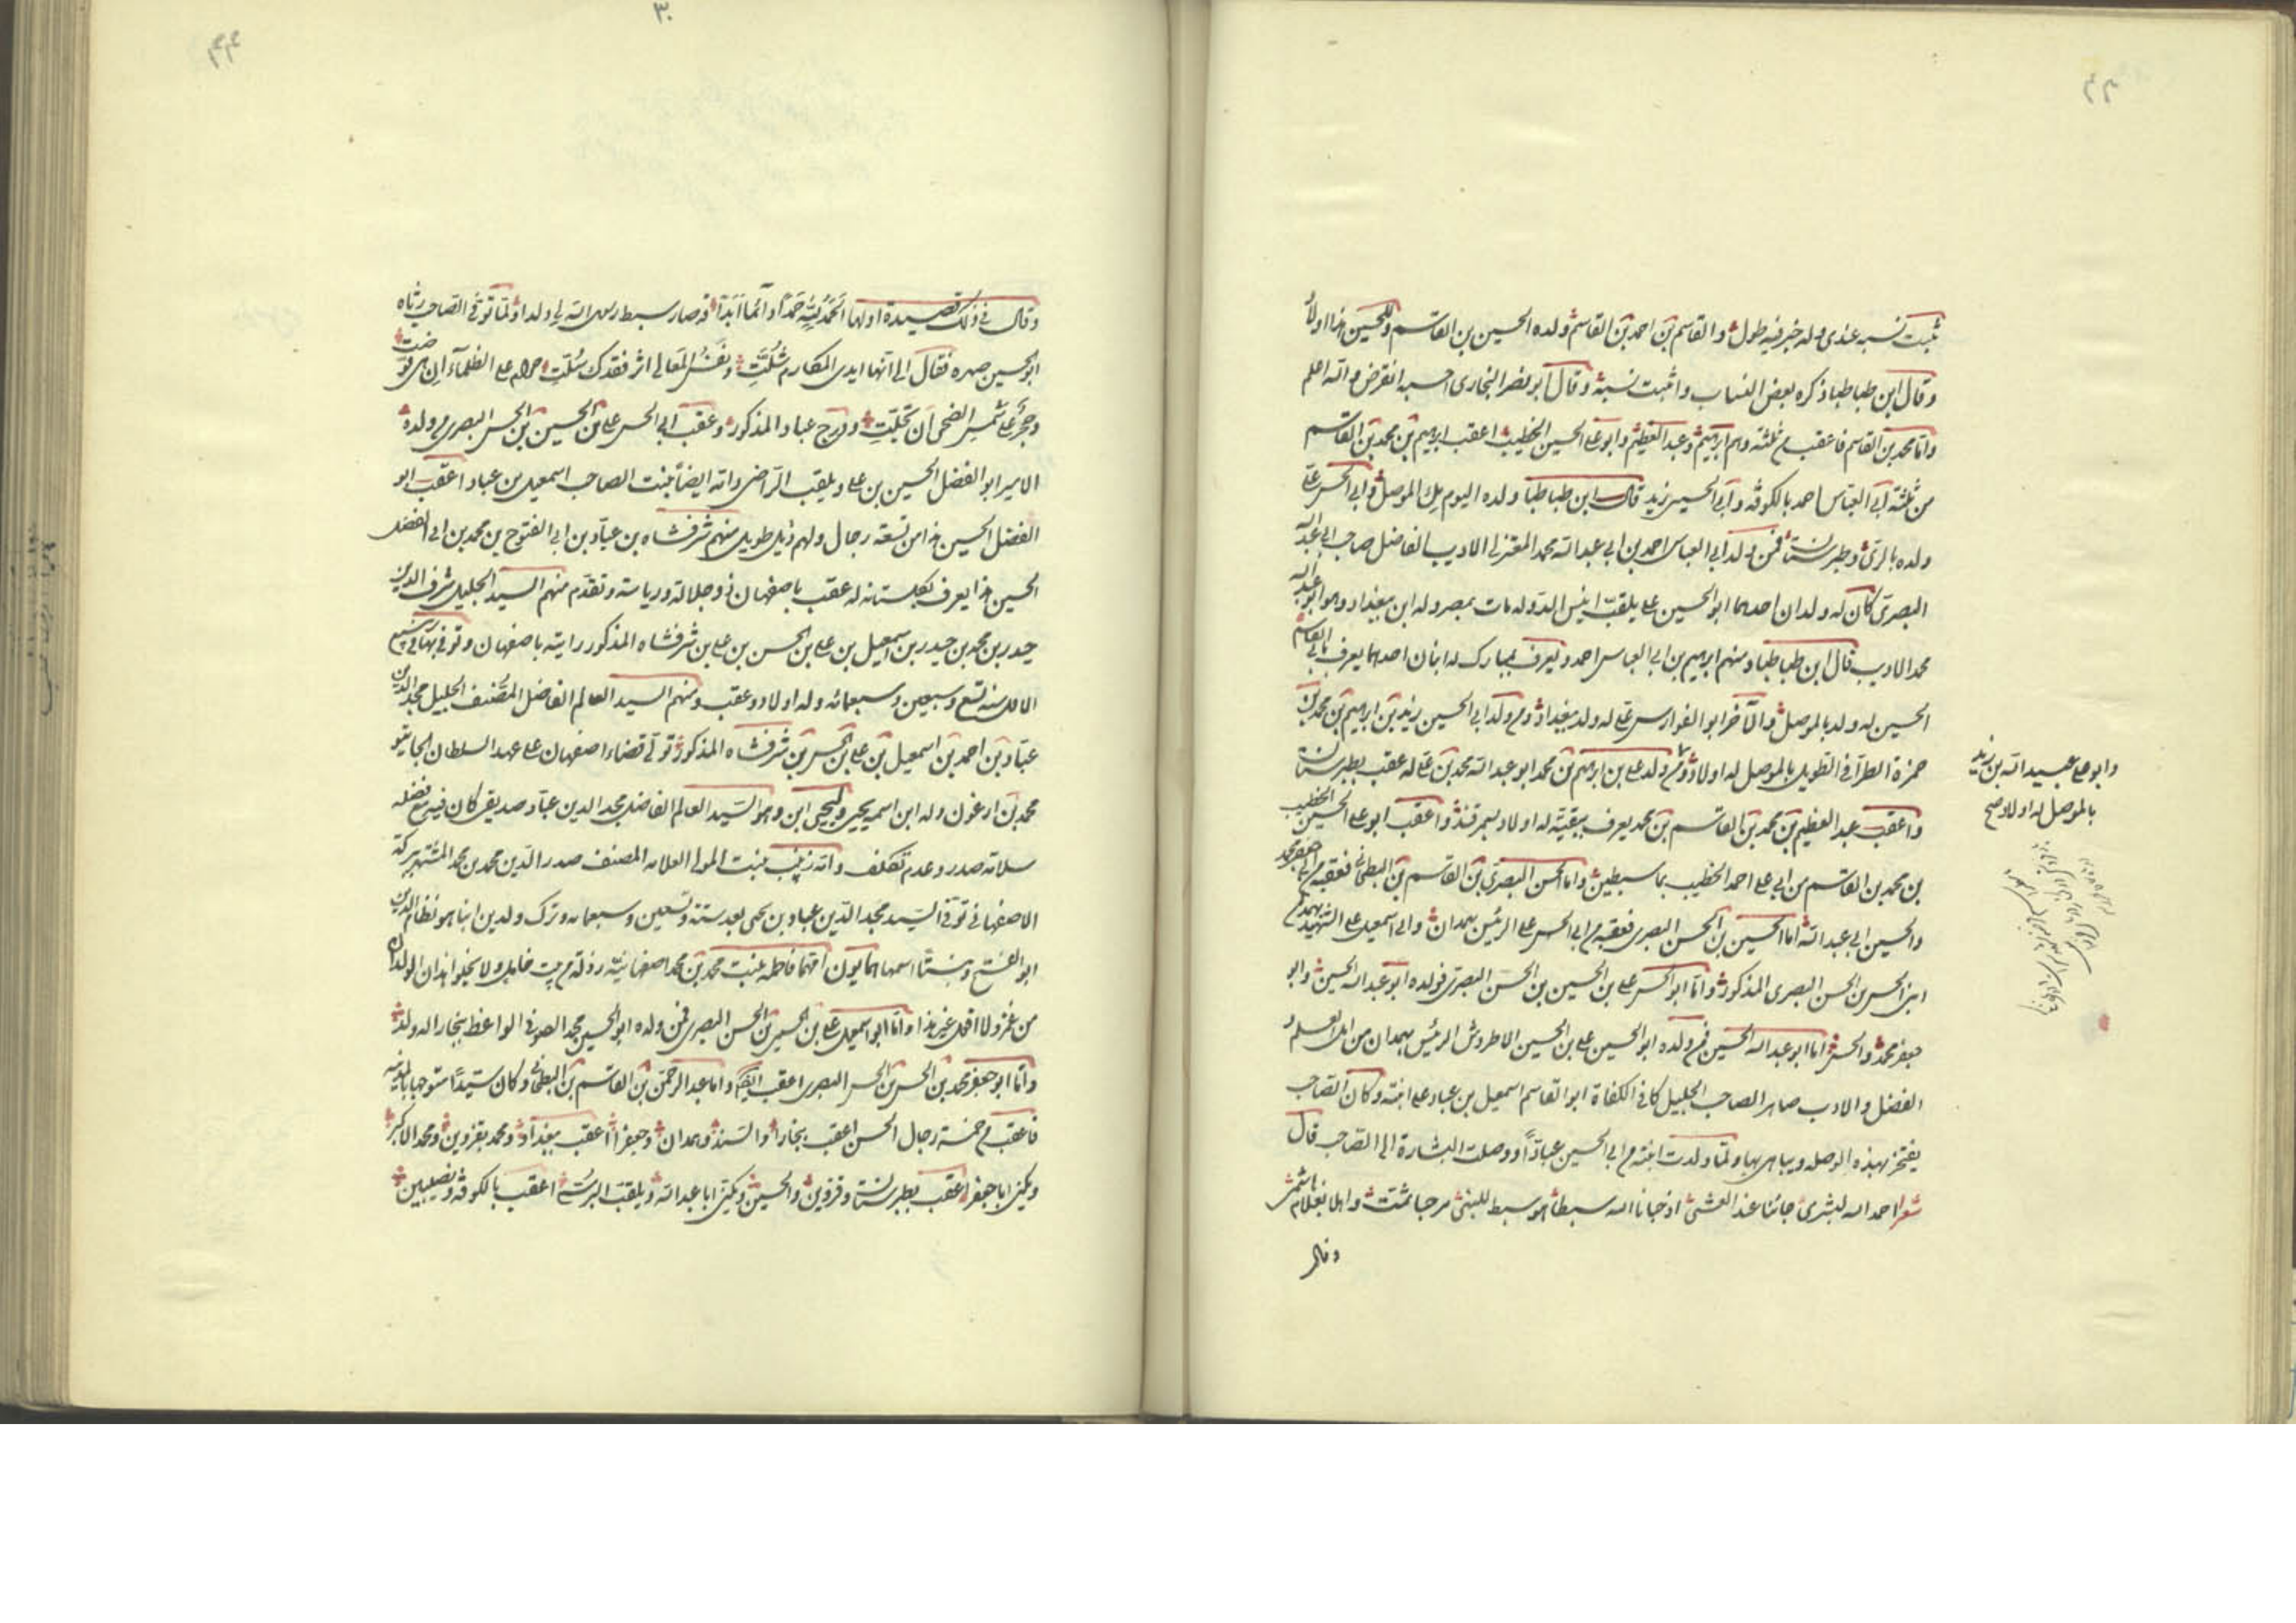 ثبت نسبه عندى وله خبر فيه طول والقاسم بن احمد بن القاسم ولده الحسين بن القاسم وللحسين هذا اولاد
وقال ابن طباطبا ذكره بعض النساب واثبت نسبه وقال ابو نصر البخارى احسبه انقرض والله اعلم
واما محمد بن القاسم فاعقب من ثلثة وهم ابرهيم وعبد العظيم وابو على الحسين الخطيب اعقب ابرهيم بن محمد بن القاسم
من ثلثة ابى العباس احمد بالكوفة وابى الحسين زيد قال ابن طباطبا ولده اليوم بالموصل وابى الحسن على
ولده بالرى وطبرستان فمن ولد ابى العباس احمد بن ابى عبد الله محمد المعتزلى الاديب الفاضل صاحب ابى عبد الله
البصرى كان له ولدان احدهما ابو الحسين على يلقب انيس الدولة مات بمصر وله ابن ببغداد وهو ابو عبد الله
محمد الاديب قال ابن طباطبا ومنهم ابرهيم بن ابى العباس احمد ويعرف بمبارك له ابنان احدهما يعرف بابى القاسم
الحسين له ولد بالموصل والآخر ابو الفوارس على له ولد ببغداد ومن ولد ابى الحسين زيد بن ابرهيم بن محمد بن
حمزة الطويل بالموصل له اولاد ومن ولد على بن ابرهيم بن محمد ابو عبد الله محمد بن على له عقب بطبرستان
وابو على عبيد الله بن زيد
بالموصل له اولاد صح
واعقب عبد العظيم بن محمد بن القاسم بن محمد يعرف ببقيته له اولاد بسمرقند واعقب ابو على الحسين الخطيب
بن محمد بن القاسم من ابى على احمد الخطيب واما الحسن البصرى بن القاسم بن البطحانى فعقبه من ابى جعفر محمد
والحسين ابى عبد الله اما الحسين بن الحسن البصرى فعقبه من ابى الحسن على الرئيس بهمدان وابى اسمعيل على الشهيد
ابنى الحسين بن الحسن البصرى المذكور واما ابو الحسن على بن الحسين بن الحسن البصرى فولده ابو عبد الله الحسين وابو
جعفر محمد والحسن اما ابو عبد الله الحسين فمن ولده ابو الحسين على بن الحسين الاطروش الرئيس بهمدان من اهل العلم و
الفضل والادب صاهر الصاحب الجليل كافى الكفاة ابو القاسم اسمعيل بن عباد على ابنته وكان الصاحب
يفتخر بهذه الوصلة ويباهى بها ولما ولدت ابنته من ابى الحسين عبادا ووصلت البشارة الى الصاحب قال
شعر احمد الله لبشرى جائنا عند العشى اذ حبانا الله سبطا هو سبط للنبى مرحبا ثمت واهلا بغلام هاشمى
وقال
وقال فى ذلك قصيدة اولها الحمد لله حمدا دائما ابدا قد صار سبط رسول الله لى ولدا ولما توفى الصاحب رثاه
ابو الحسين صهره فقال الا انها ايدى المكارم شلت ونفس المعالى اثر فقدك سلت حرام على الظلماء ان هى قوضت
وحجر على شمس الضحى ان تجلت ودرج عباد المذكور وعقب ابى الحسن على بن الحسين بن الحسن البصرى من ولده
الامير ابو الفضل الحسين بن على ويلقب الراضى وامه ايضا بنت الصاحب اسمعيل بن عباد اعقب ابو
الفضل الحسين هذا من تسعة رجال ولهم ذيل طويل منهم شرفشاه بن عباد بن ابى الفتوح بن محمد بن ابى الفضل
الحسين هذا يعرف بكلستانه له عقب باصفهان ذو جلالة ورياسة وتقدم منهم السيد الجليل شرف الدين
حيدر بن محمد بن حيدر بن اسمعيل بن على بن الحسن بن على بن شرفشاه المذكور رايته باصفهان وتوفى بها فى ربيع
الاول سنة تسع وسبعين وسبعمائة وله اولاد وعقب ومنهم السيد العالم الفاضل المصنف الجليل مجد الدين
عباد بن احمد بن اسمعيل بن على بن الحسن بن شرفشاه المذكور تولى قضاء اصفهان على عهد السلطان الجايتو
محمد بن ارغون وله ابن اسمه يحيى وليحيى ابن وهو السيد العالم الفاضل مجد الدين عباد صديقى كان فيه مع فضله
سلامة صدر وعدم تكلف وامه زينب بنت المولى العلامه المصنف صدر الدين محمد بن محمد المشتهر بتركة
الاصفهانى توفى السيد مجد الدين عباد بن يحيى بعد سنة وتسعين وسبعمائة وترك ولدين ابنا هو نظام الدين
ابو الفتح وبنتا اسمها همايون امهما فاطمه بنت محمد بن محمد اصفهانية رذلة من بيت خامل ولا يخلو هذان الولدان
من غمز ولا اقل غير هذا واما ابو اسمعيل على بن الحسين بن الحسن البصرى فمن ولده ابو الحسين محمد الصوفى الواعظ ببخارا له ولد
واما ابو جعفر محمد بن الحسن بن الحسن البصرى اعقب واما عبد الرحمن بن القاسم بن البطحانى وكان سيدا متوجها بالمدينة
فاعقب من خمسة رجال الحسن اعقب ببخارا والسند وهمدان وجعفر اعقب ببغداد ومحمد بقزوين ومحمد الاكبر
ويكنى ابا جعفر اعقب بطبرستان وقزوين والحسين ويكنى ابا عبد الله ويلقب البرسى اعقب بالكوفة ونصيبين